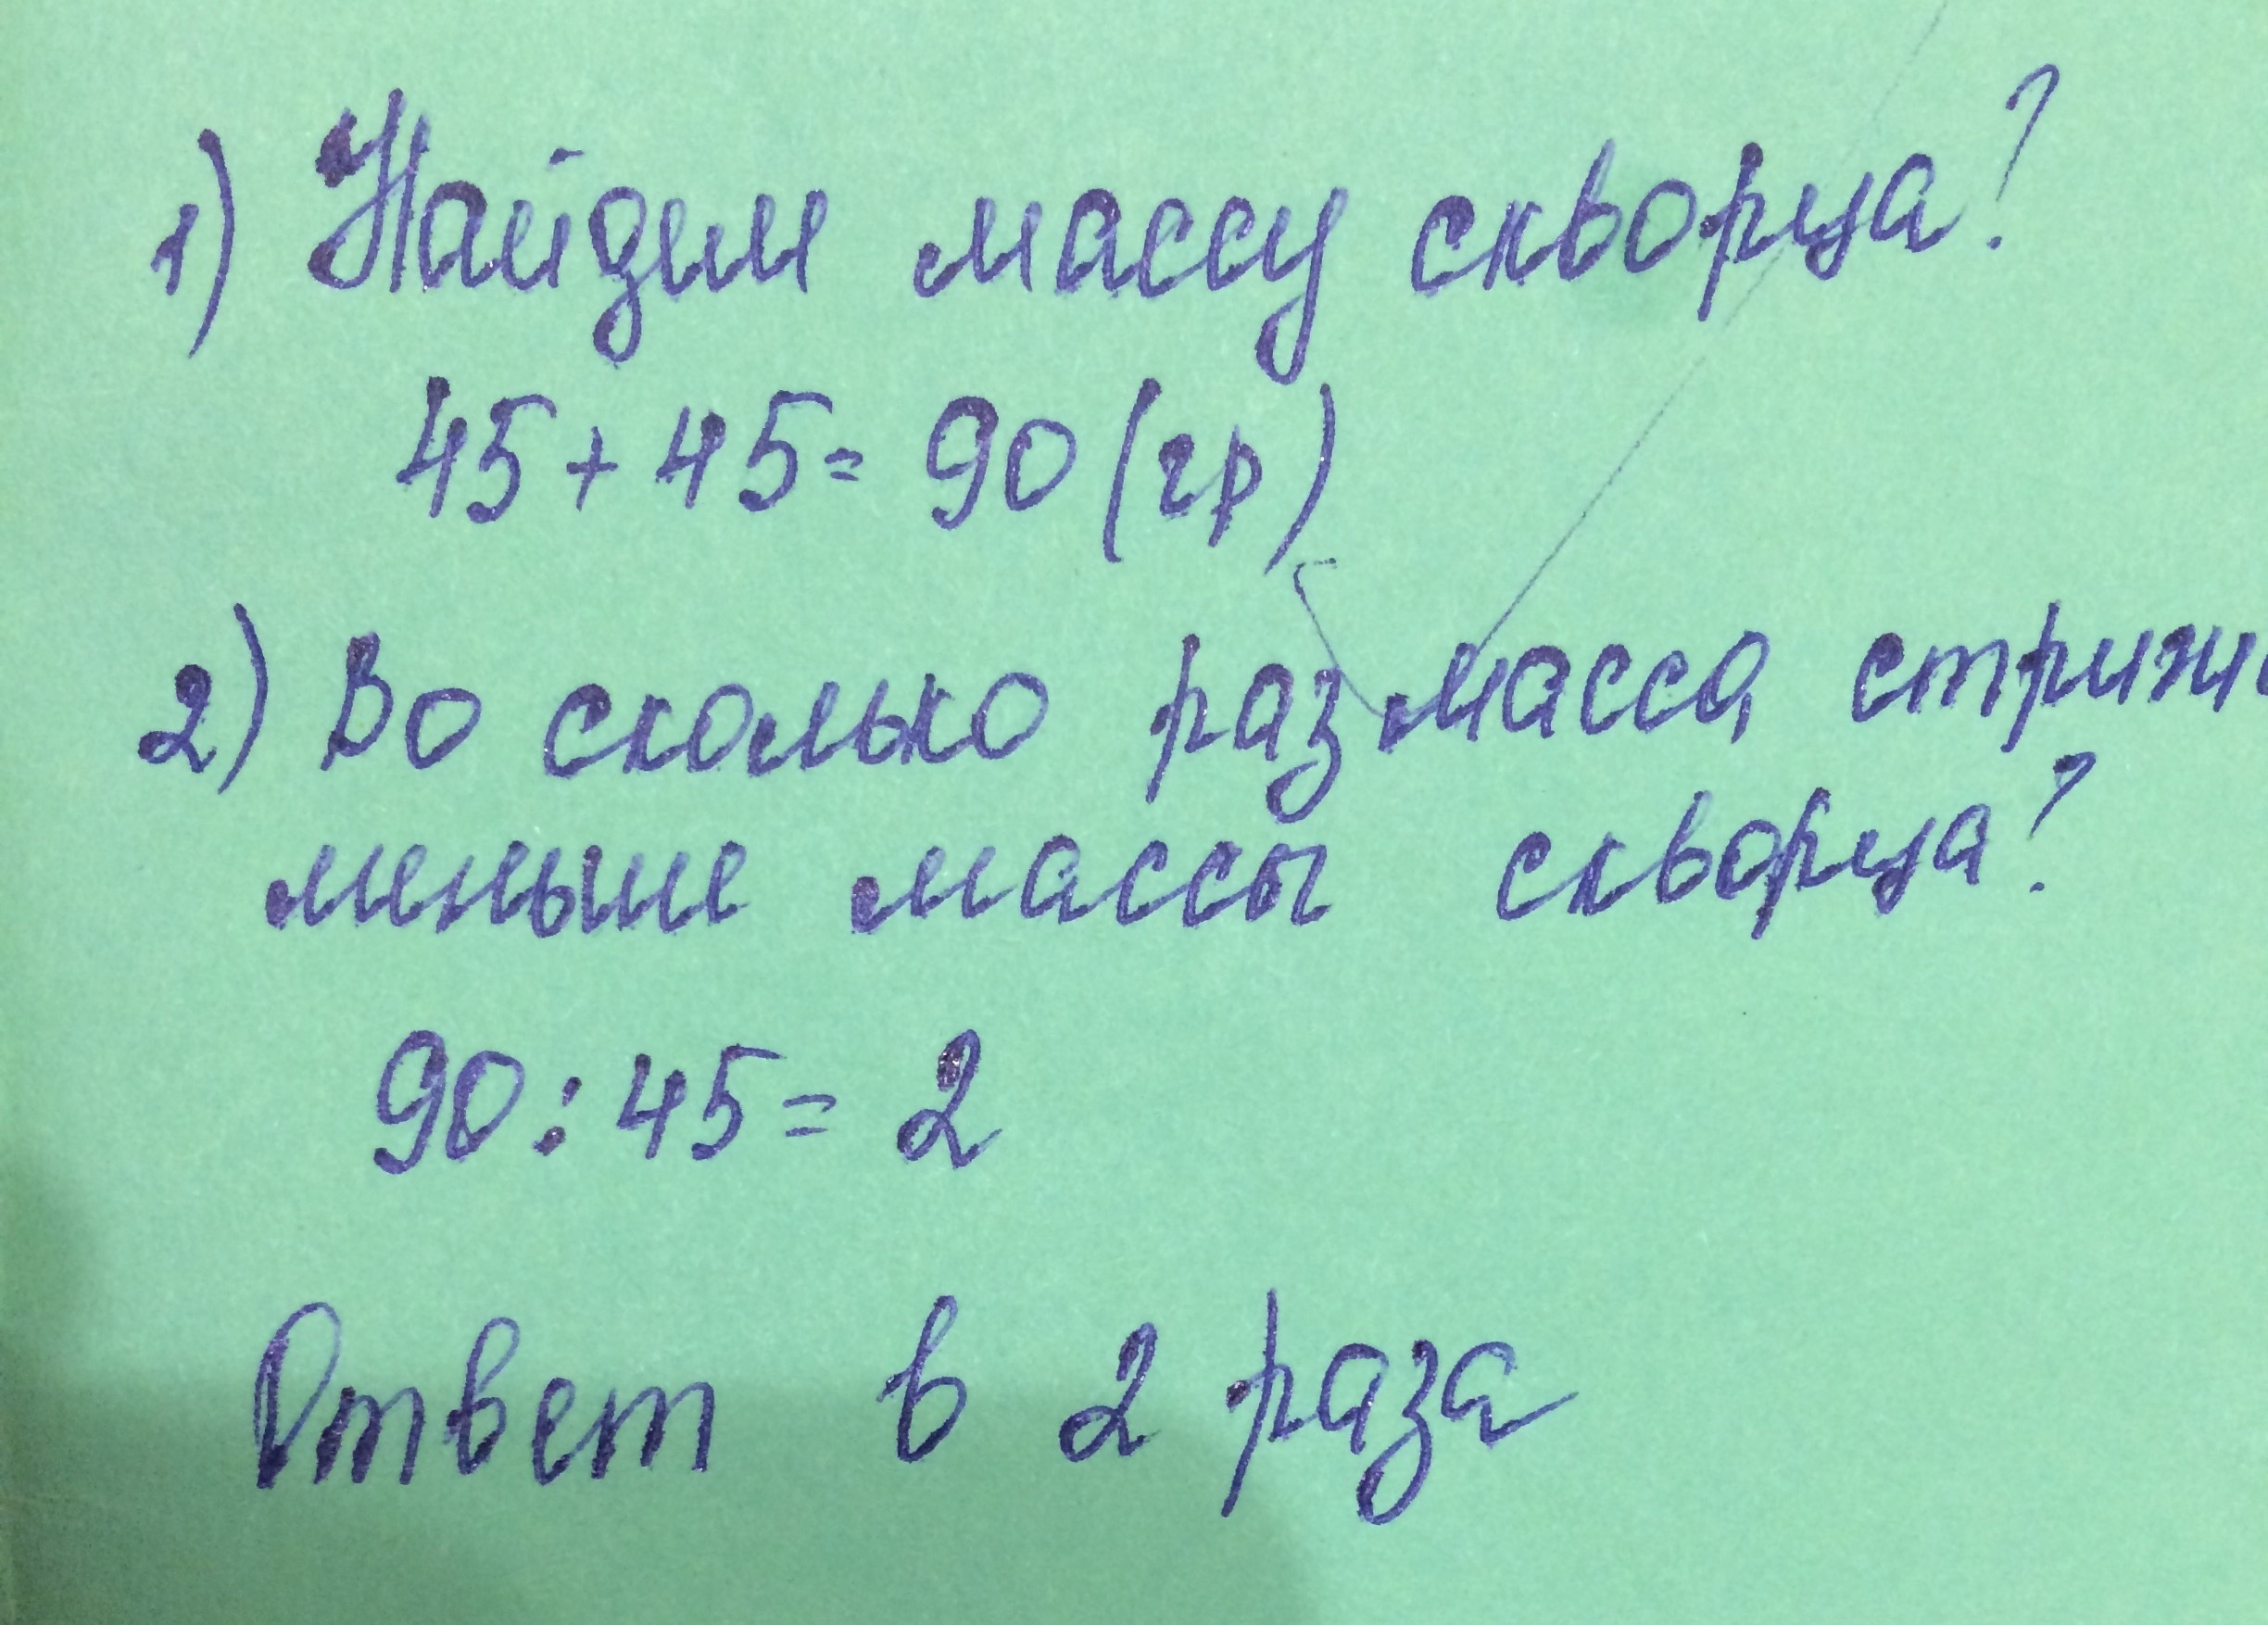 1) Найдим массу скворца?
45 + 45 = 90 (гр)
2) Во сколько раз масса стрижи
меньше массы скворца?
90 : 45 = 2
Ответ в 2 раза